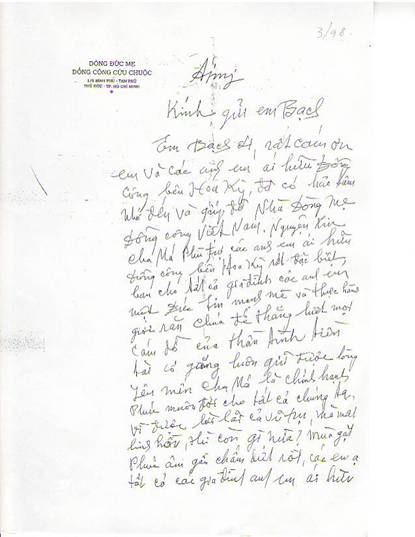 DÒNG ĐỨC MẸ
ĐỒNG CÔNG CỨU CHUỘC
BÌNH PHÚ - TAM PHÚ
THỦ ĐỨC - TP. HỒ CHÍ MINH
3/98
Kính gửi em Bạch
Em Bạch ơi, rất cám ơn
em và các anh em ái hữu Đồng
Công bên Hoa Kỳ, đã có hảo tâm
nhớ đến và giúp đỡ Nhà Dòng Mẹ
Đồng Công Việt Nam. Nguyện xin
Cha Mẹ các anh em ái hữu
Đồng Công bên Hoa Kỳ rất đặc biệt,
ban cho tất cả gia đình các anh em
một Đức Tin mạnh mẽ và thực hành
giới răn Chúa để thắng hết mọi
cám dỗ của thần
tất cả cố gắng luôn giữ được lòng
yêu mến Cha Mẹ là chính hạnh
phúc muôn đời cho tất cả chúng ta.
Vì được lời lãi cả vũ trụ, mà mất
linh hồn, thì còn gì nữa?
Phúc âm gần chấm dứt rồi, các em ạ
tất cả các gia đình anh em ái hữu